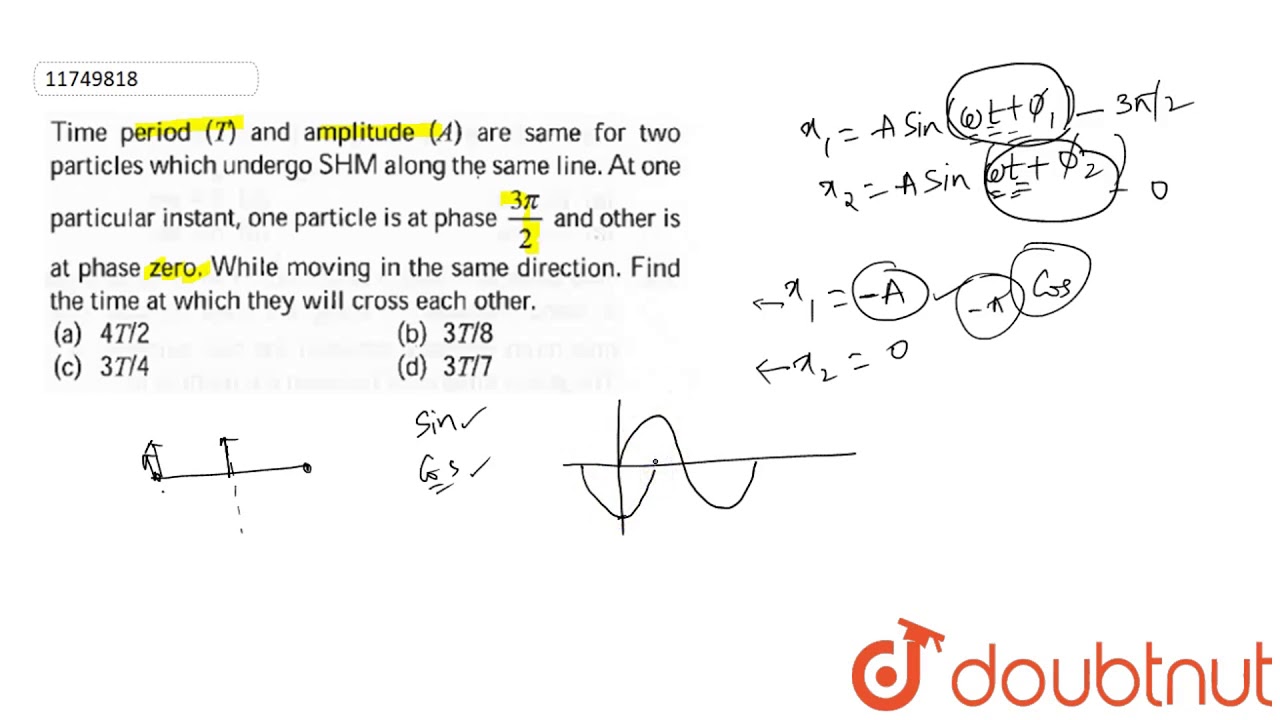 11749818
Time period (T) and amplitude (A) are same for two
particles which undergo SHM along the same line. At one
particular instant, one particle is at phase 3π/2 and other is
at phase zero. While moving in the same direction. Find
the time at which they will cross each other.
(a) 4T/2
(b) 3T/8
(c) 3T/4
(d) 3T/7
x₁ = A Sin (ωt + ϕ₁) — 3π/2
x₂ = A Sin (ωt + ϕ₂) - 0
← x₁ = -A -A Cos
← x₂ = 0
Sin ✓
Cos ✓
doubtnut